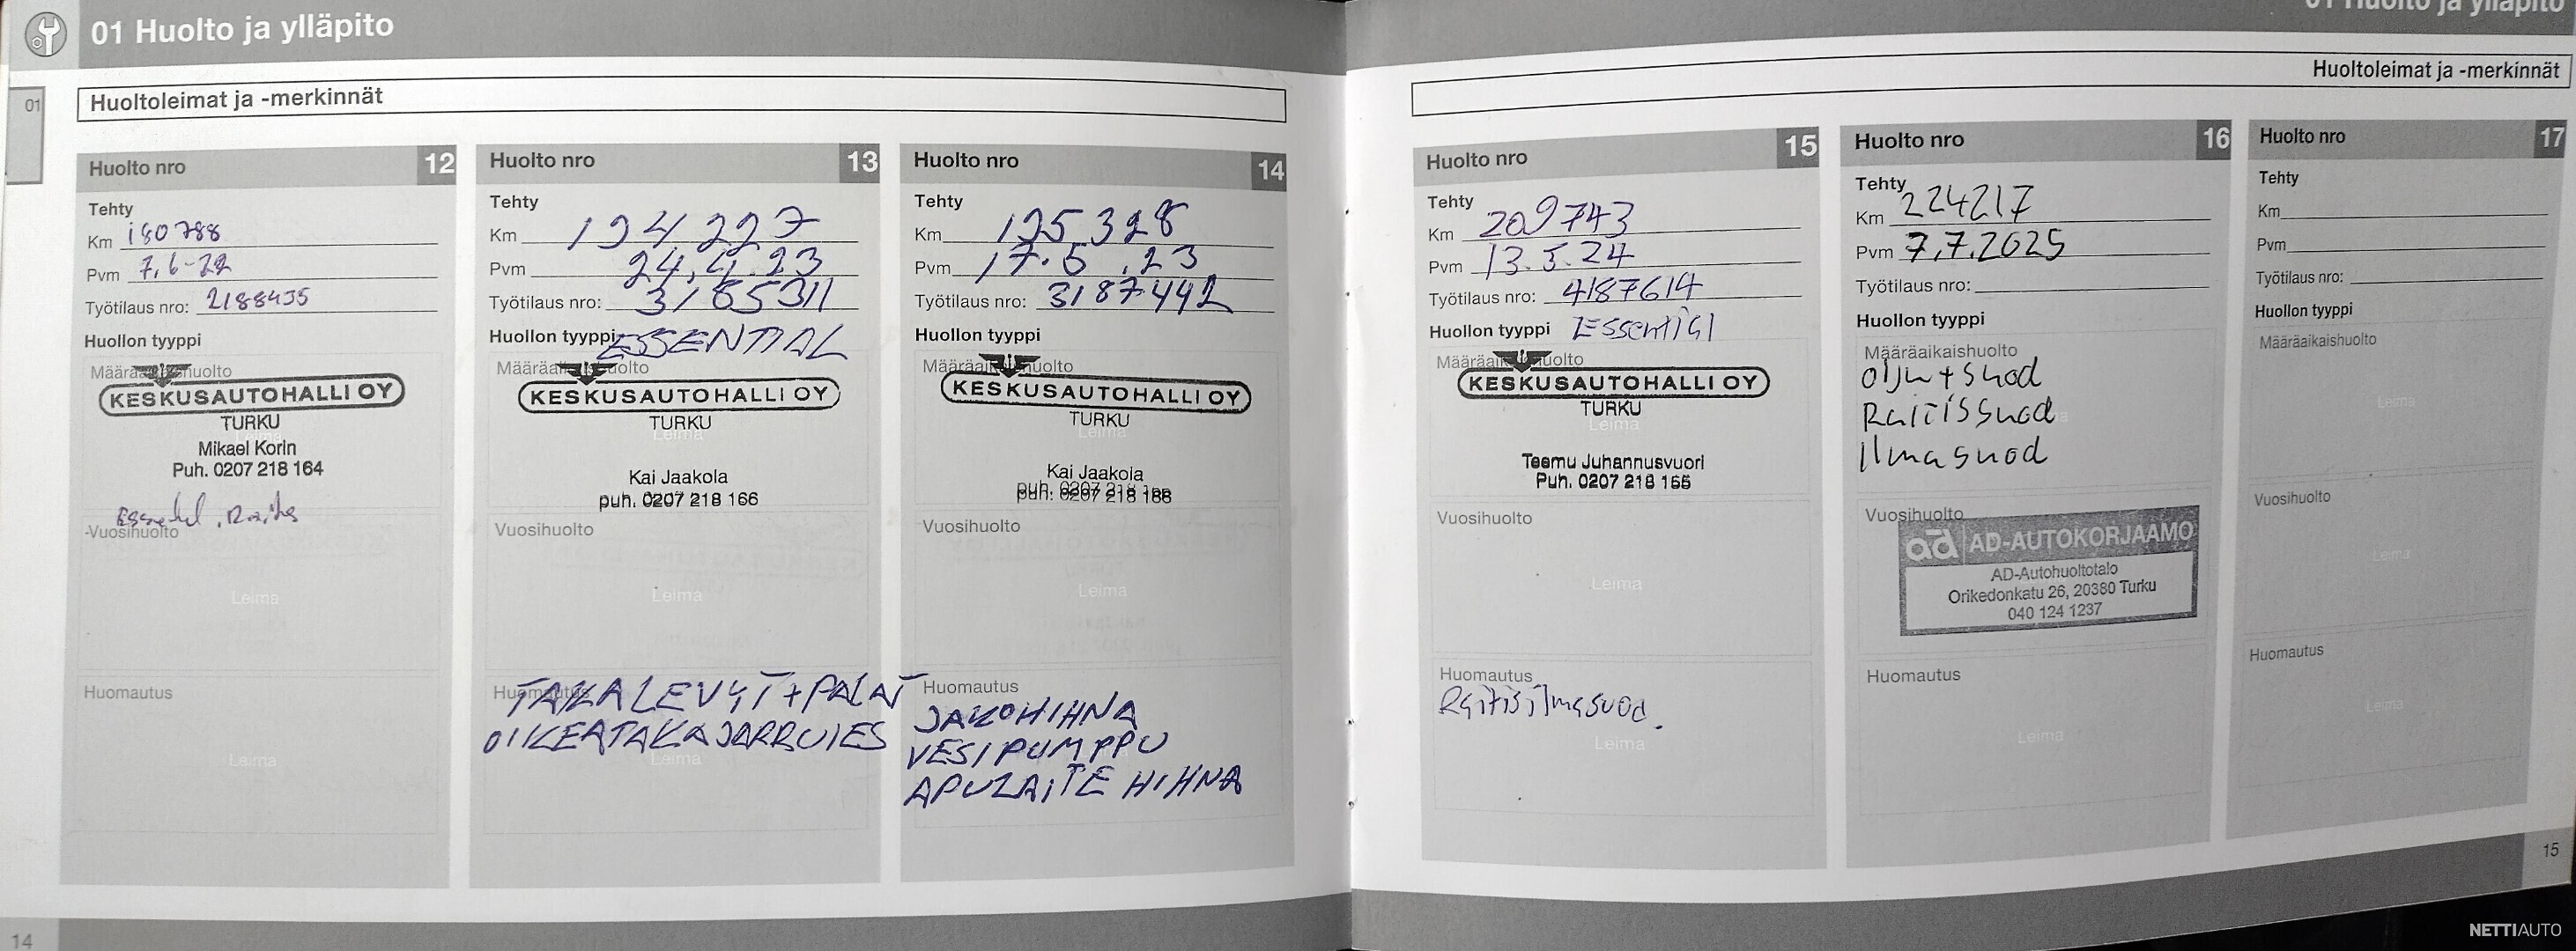 01 Huolto ja ylläpito
01
Huoltoleimat ja -merkinnät
Huolto nro 12
Tehty
Km 180788
Pvm 7.6-22
Työtilaus nro: 2188435
Huollon tyyppi
Määräaikaishuolto
KESKUSAUTOHALLI OY
TURKU
Mikael Korin
Puh. 0207 218 164
Vuosihuolto
Leima
Huomautus
Leima
Huolto nro 13
Tehty
Km 194227
Pvm 24.4.23
Työtilaus nro: 3185311
Huollon tyyppi ESSENTIAL
Määräaikaishuolto
KESKUSAUTOHALLI OY
TURKU
Leima
Kai Jaakola
puh. 0207 218 166
Vuosihuolto
Leima
Huomautus
TAKALEVYT + PALAT
OIKEATAKAJARRUIES
Leima
Huolto nro 14
Tehty
Km 195328
Pvm 17.5.23
Työtilaus nro: 3187442
Huollon tyyppi
Määräaikaishuolto
KESKUSAUTOHALLI OY
TURKU
Leima
Kai Jaakola
puh. 0207 218 166
Vuosihuolto
Leima
Huomautus
JAKOHIHNA
VESIPUMPPU
APULAITE HIHNA
14
01 Huolto ja ylläpito
Huoltoleimat ja -merkinnät
Huolto nro 15
Tehty
Km 209743
Pvm 13.5.24
Työtilaus nro: 4187614
Huollon tyyppi Essential
Määräaikaishuolto
KESKUSAUTOHALLI OY
TURKU
Leima
Teemu Juhannusvuori
Puh. 0207 218 165
Vuosihuolto
Leima
Huomautus
Raitisilmasuod.
Leima
Huolto nro 16
Tehty
Km 224217
Pvm 7.7.2025
Työtilaus nro:
Huollon tyyppi
Määräaikaishuolto
öljy + suod
Raitissuod
Ilmasuod
Vuosihuolto
ad AD-AUTOKORJAAMO
AD-Autohuoltotalo
Orikedonkatu 26, 20380 Turku
040 124 1237
Huomautus
Leima
Huolto nro 17
Tehty
Km
Pvm
Työtilaus nro:
Huollon tyyppi
Määräaikaishuolto
Leima
Vuosihuolto
Leima
Huomautus
Leima
15
NETTIAUTO